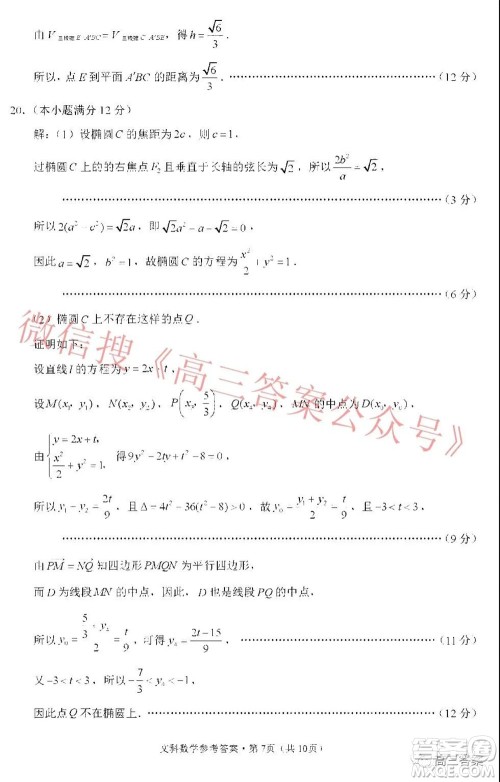 由 V三棱锥 E-A′BC = V三棱锥 C-A′BE，得 h = √6/3 .
所以，点 E 到平面 A′BC 的距离为 √6/3 . ……………………（12 分）
20.（本小题满分 12 分）
解：（1）设椭圆 C 的焦距为 2c，则 c = 1，
过椭圆 C 上的的右焦点 F₂ 且垂直于长轴的弦长为 √2，所以 2b²/a = √2，
……………………（3 分）
所以 2(a² − c²) = √2a，即 √2a² − a − √2 = 0，
因此 a = √2，b² = 1，故椭圆 C 的方程为 x²/2 + y² = 1 .
……………………（6 分）
（2）椭圆 C 上不存在这样的点 Q .
证明如下：
设直线 l 的方程为 y = 2x + t，
设 M(x₁, y₁)，N(x₂, y₂)，P(x₃, 5/3)，Q(x₄, y₄)，MN 的中点为 D(x₀, y₀)，
由 { y = 2x + t, x²/2 + y² = 1, 得 9y² − 2ty + t² − 8 = 0，
所以 y₁ + y₂ = 2t/9，且 Δ = 4t² − 36(t² − 8) > 0，故 y₀ = (y₁ + y₂)/2 = t/9，且 −3 < t < 3 .
……………………（9 分）
由 PM = NQ 知四边形 PMQN 为平行四边形，
而 D 为线段 MN 的中点，因此，D 也是线段 PQ 的中点，
所以 y₀ = (5/3 + y₄)/2 = t/9，可得 y₄ = (2t − 15)/9 . ……………………（11 分）
又 −3 < t < 3，所以 −7/3 < y₄ < −1，
因此点 Q 不在椭圆上. ……………………（12 分）
文科数学参考答案·第 7 页（共 10 页）
微信搜《高三答案公众号》
高三答案